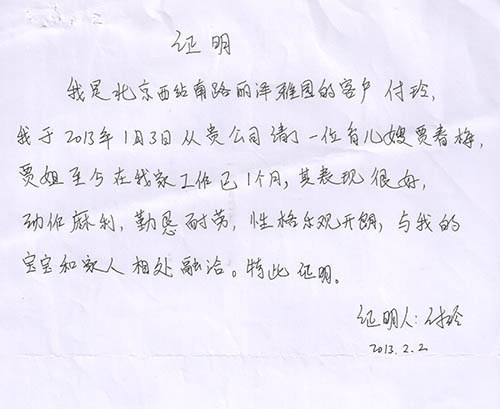 证明
我是北京西站南路丽泽雅园的客户付玲,
我于2013年1月3日从贵公司请了一位育儿嫂贾春梅,
贾姐至今在我家工作已1个月,其表现很好,
动作麻利,勤恳耐劳,性格乐观开朗,与我的
宝宝和家人相处融洽。特此证明。
证明人:付玲
2013.2.2